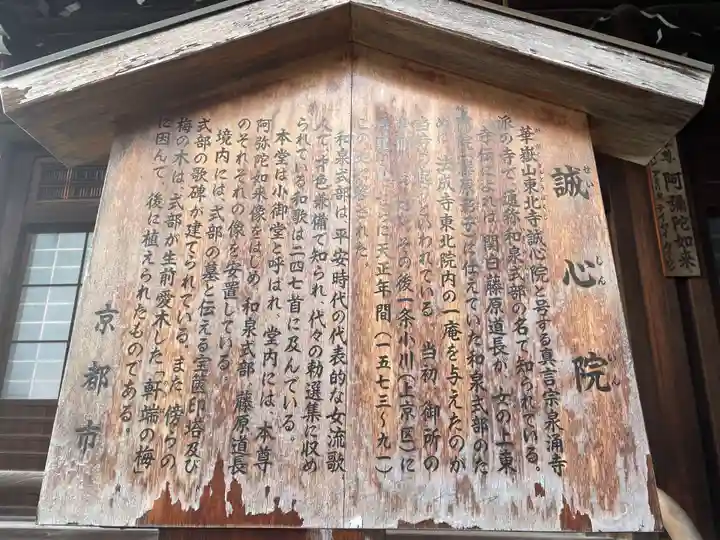 誠心院
せいしんいん
華嶽山東北寺誠心院と号する真言宗泉涌寺
派の寺で、通称和泉式部の名で知られている。
寺伝によれば、関白藤原道長が、女の上東
に仕えていた和泉式部のた
めに、法成寺東北院内の一庵を与えたのが
当寺の起りといわれている。当初、御所の
その後一条小川(上京区)に
に天正年間(一五七三~九一)
この
和泉式部は、平安時代の代表的な女流歌
人で、才色兼備で知られ、代々の勅選集に収め
られている和歌は二四七首に及んでいる。
本堂は小御堂と呼ばれ、堂内には、本尊
阿弥陀如来像をはじめ、和泉式部、藤原道長
のそれぞれの像を安置している。
境内には、式部の墓と伝える宝篋印塔及び
式部の歌碑が建てられている。また、傍らの
梅の木は、式部が生前愛木した「軒端の梅」
に因んで、後に植えられたものである。
京都市
尊 阿彌陀如来